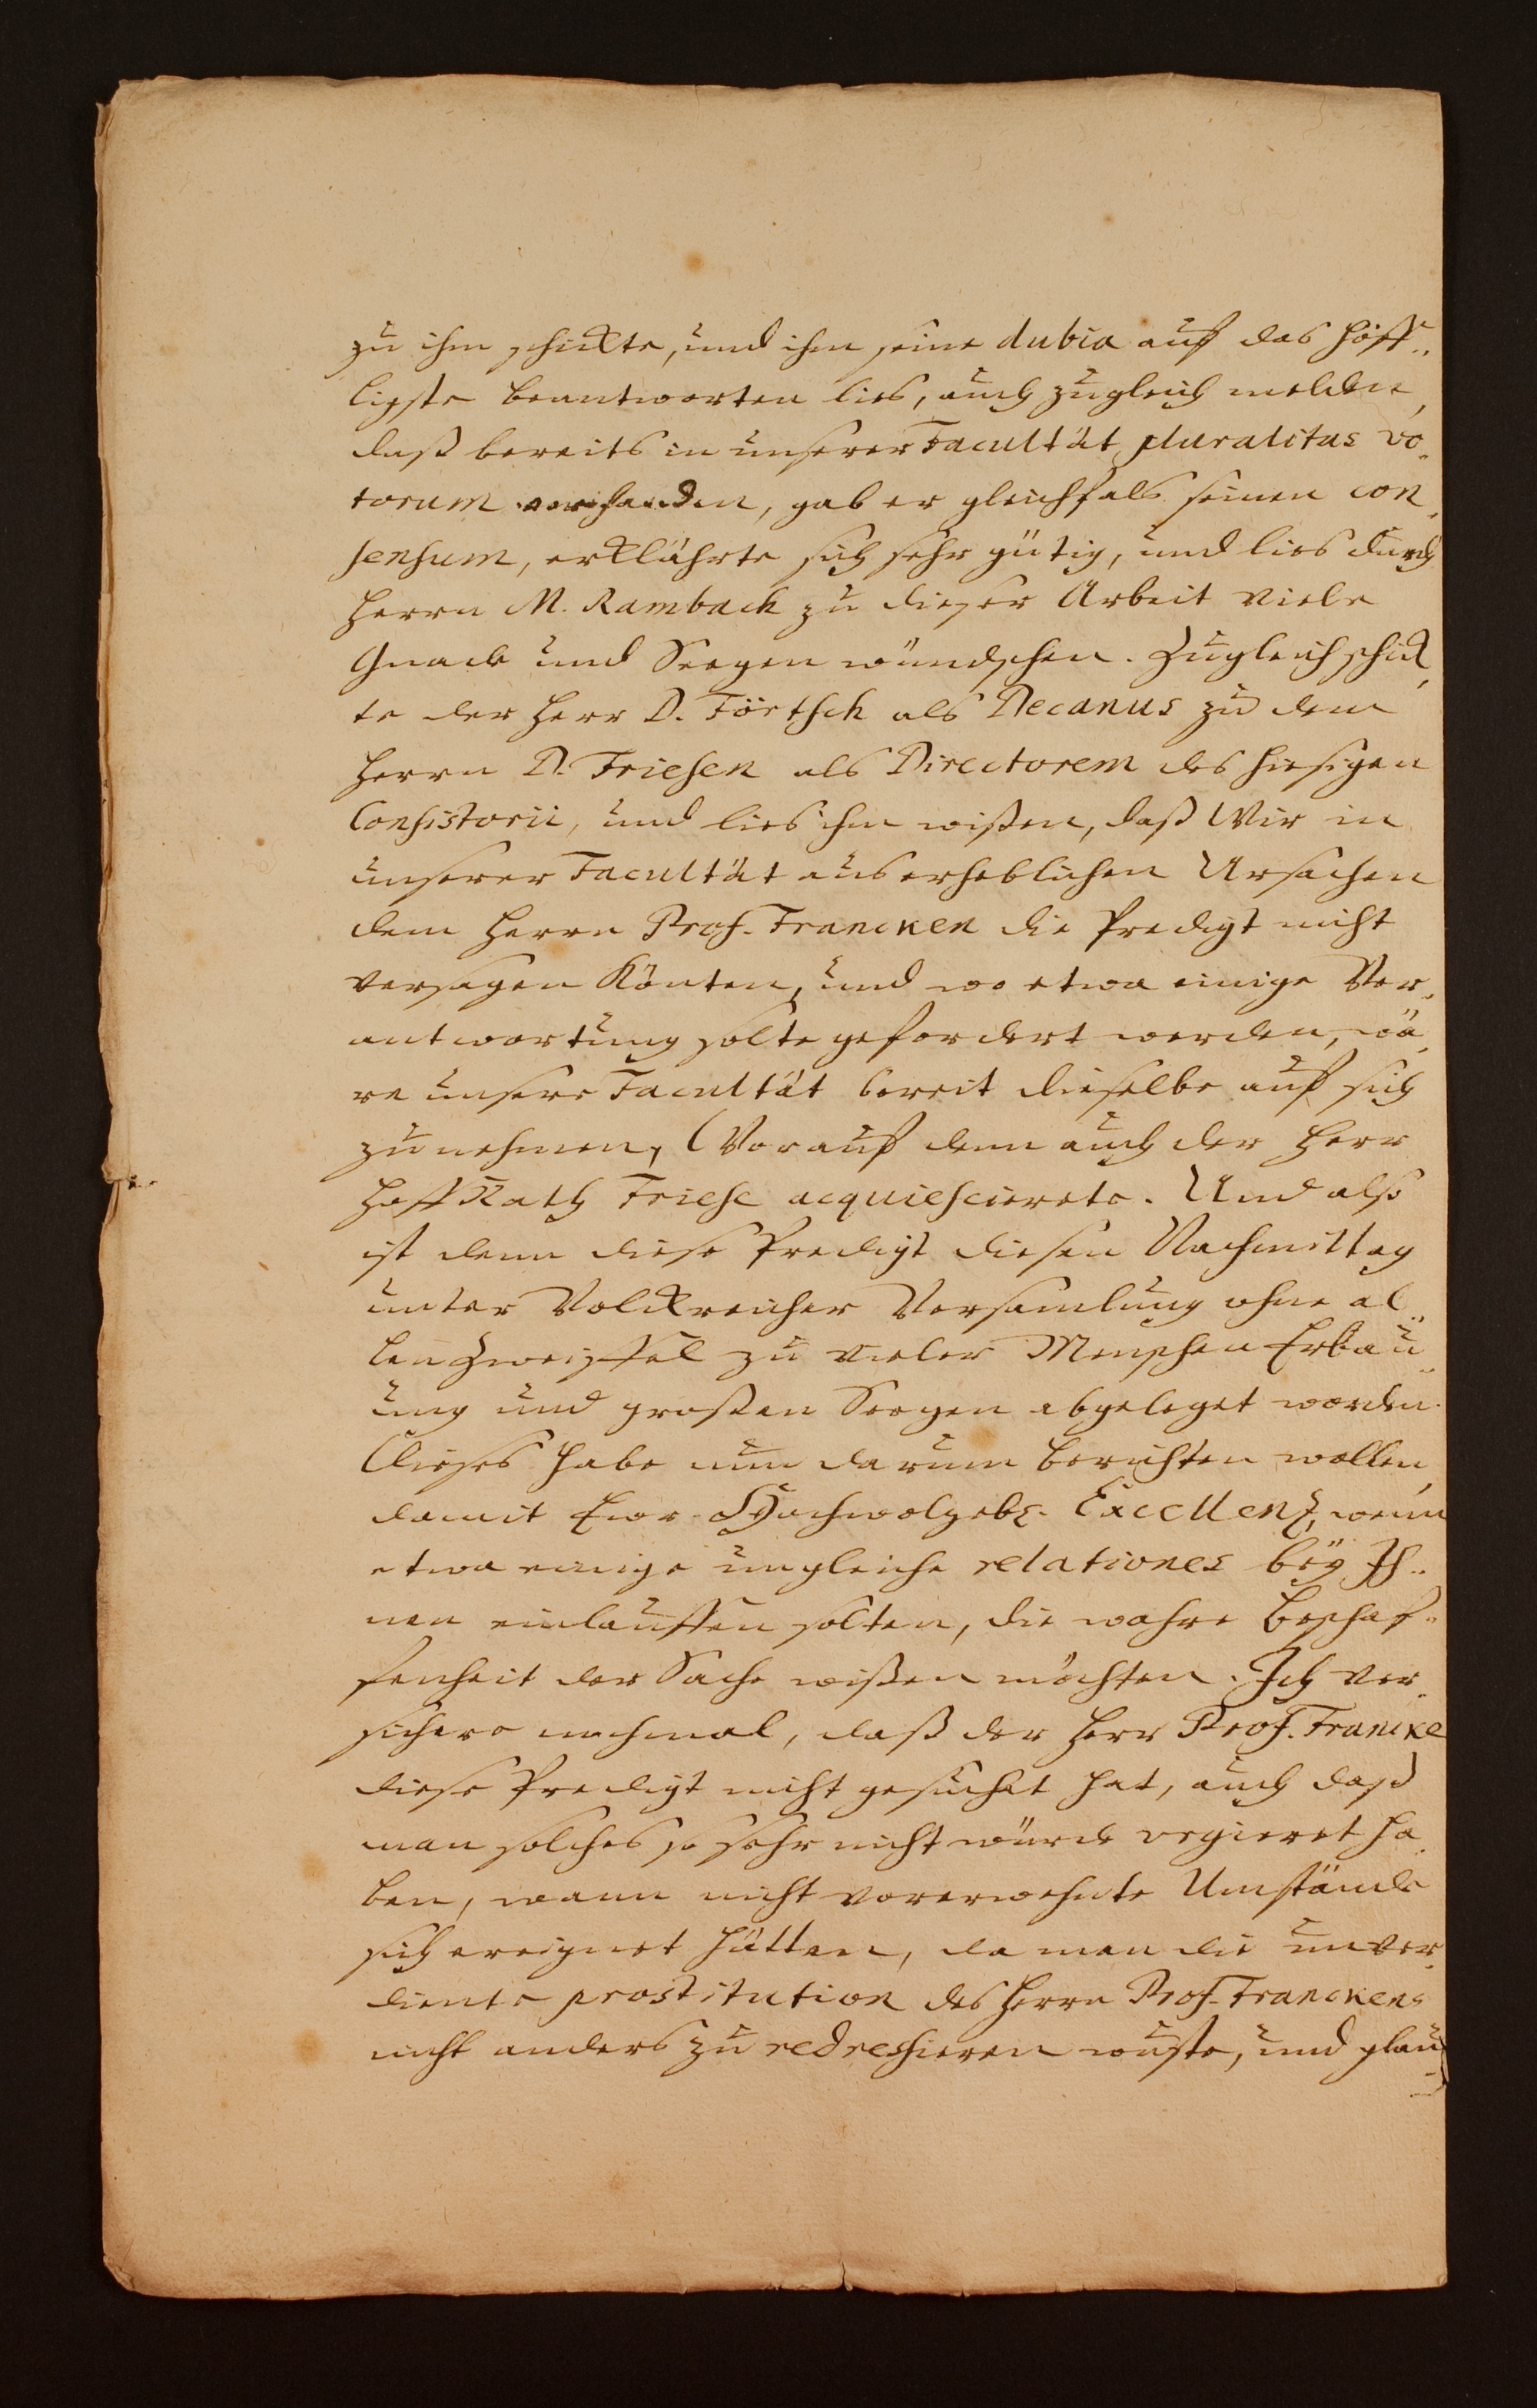 zu ihm schickte, und ihm seine dubia auf das höff-
ligste beantworten lies, auch zugleich melden,
daß bereits in unserer Facultät pluralitas vo-
torum vorhanden, gab er gleichfals seinen con-
sensum, erklährte sich sehr gütig, und lies durch
Herrn M. Rambach zu dieser Arbeit viele
Gnade und Seegen wündschen. Zugleich schick-
te der Herr D. Förtsch als Decanus zu dem
Herrn D. Friesen als Directorem des hiesigen
Consistorii, und lies ihm wißen, daß Wir in
unserer Facultät aus erheblichen Ursachen
dem Herrn Prof. Francken die Predigt nicht
versagen könten, und wo etwa einige Ver-
antwortung solte gefordert werden, wä-
re unsere Facultät bereit dieselbe auf sich
zu nehmen, Worauf denn auch der Herr
Hoff Rath Friese acquiescierete. Und also
ist denn diese Predigt diesen Nachmittag
unter Volckreicher Versamlung ohne al-
len Zweiffel zu vieler Menschen Erbau-
ung und großen Seegen abgeleget worden.
Dieses habe nun darum berichten wollen,
damit Ewr. Hochwolgeb. Excellenz, wenn
etwa einige ungleiche relationes bey Ih-
nen einlauffen solten, die wahre Beschaf-
fenheit der Sache wißen möchten. Ich ver-
sichere nochmal, daß der Herr Prof. Francke
diese Predigt nicht gesucht hat, auch daß
man solches so sehr nicht würde urgieret ha-
ben, wann nicht vorerwehnte Umstände
sich ereignet hätten, da man die unver-
diente prostitution des Herrn Prof. Franckens
nicht anders zu redressieren wuste, und glau-